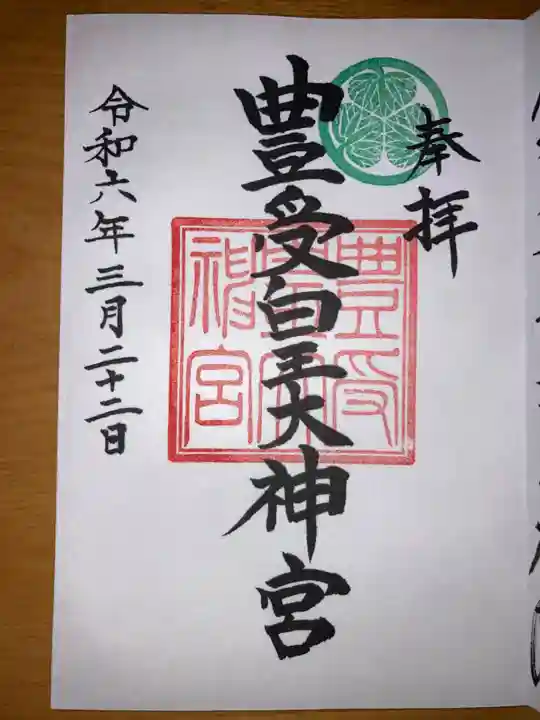 奉拝
豊受皇大神宮
豊受
皇大
神宮
令和六年三月二十二日